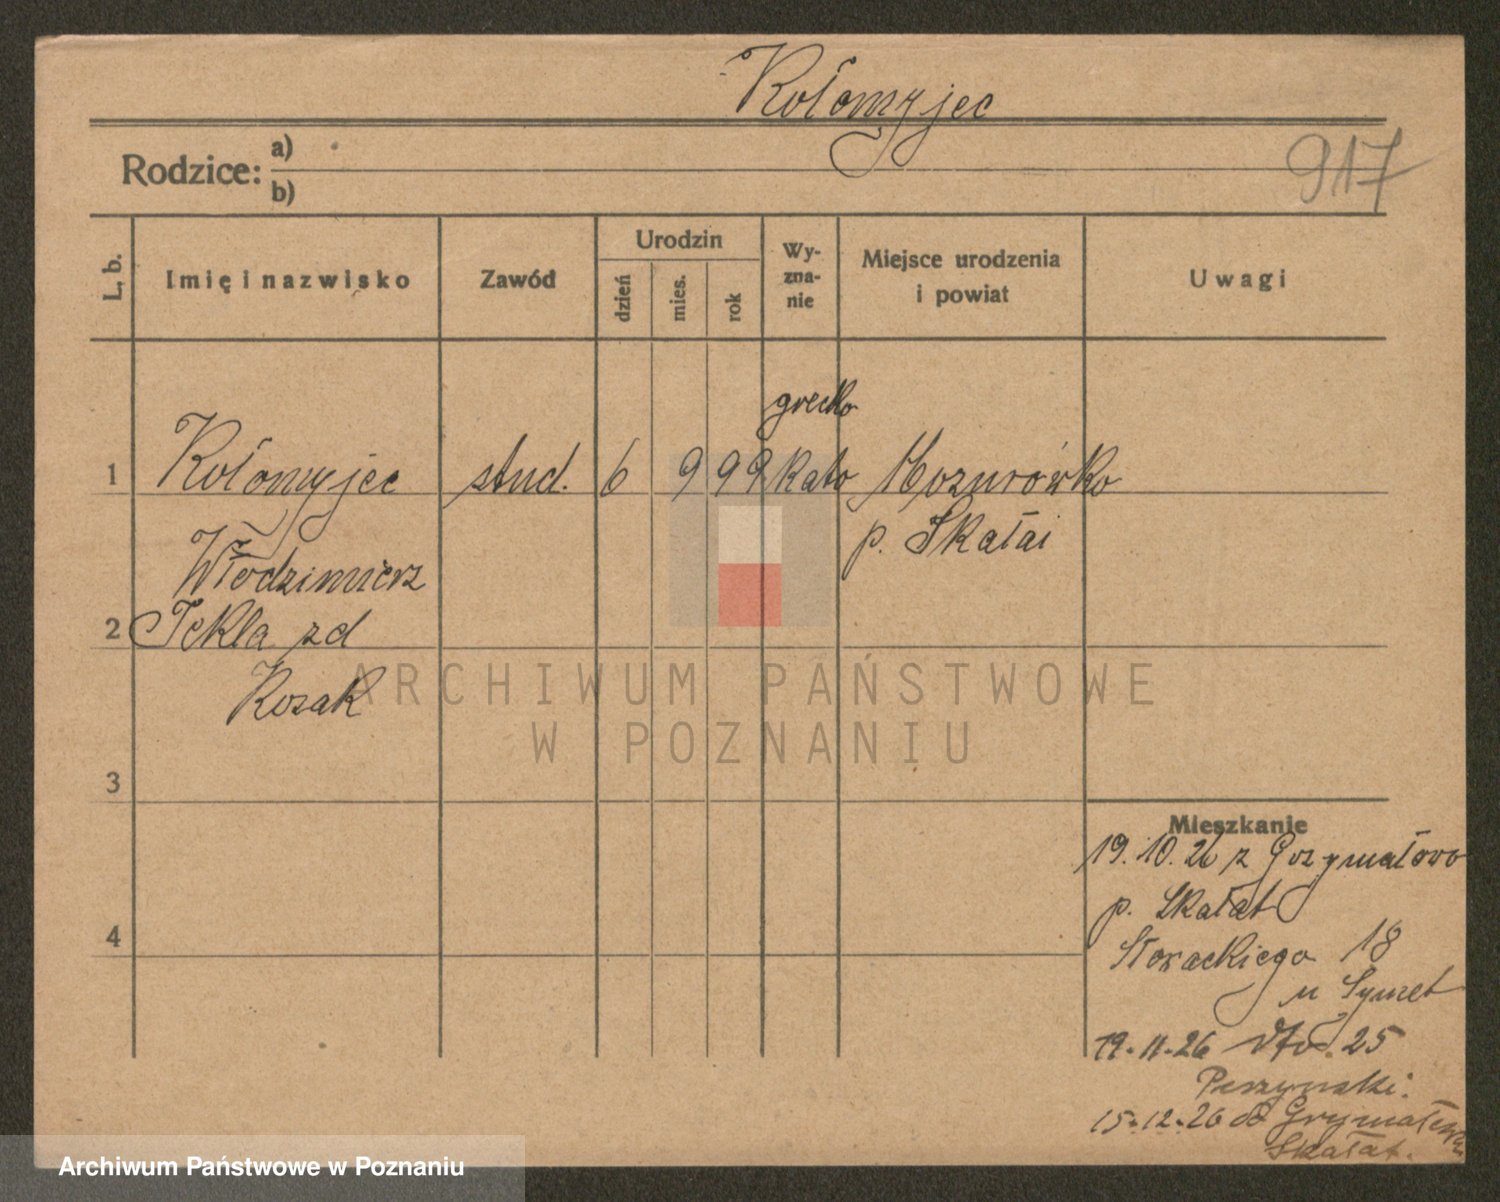 Kołomyjec
917
Rodzice: a)
b)
L. b.
Imię i nazwisko
Zawód
Urodzin
dzień
mies.
rok
Wy-
zna-
nie
Miejsce urodzenia
i powiat
Uwagi
grecko
1 Kołomyjec stud. 6 9 99 kato Mozurówka
p. Skałat
Włodzimierz
2 Tekla zd
Kozak
ARCHIWUM PAŃSTWOWE
W POZNANIU
3
Mieszkanie
19.10.26 z Grzymałowo
p. Skałat
4
Słowackiego 18
u Szmet
19.11.26 25
15.12.26 do Grzymałowa
Skałat.
Archiwum Państwowe w Poznaniu